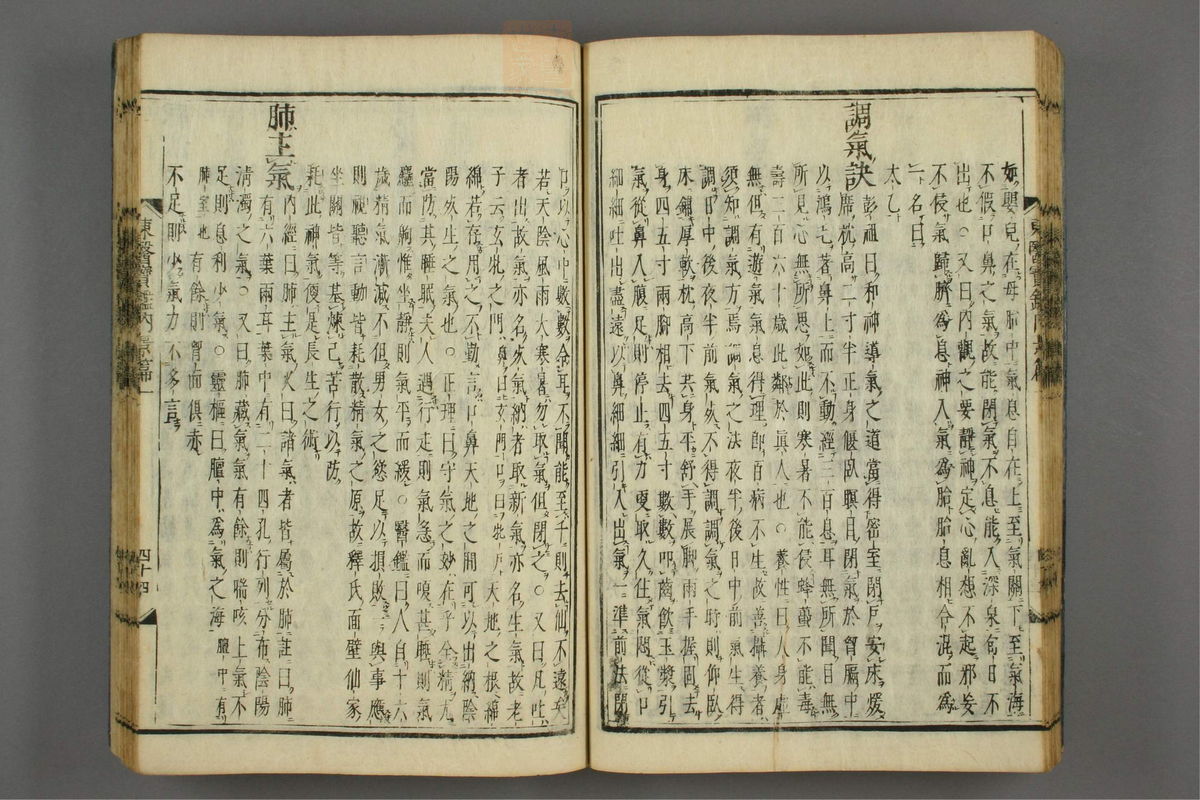 如嬰兒在母胎中氣息自在上至氣關下至氣海
不假口鼻之氣故能閉氣不息能入深泉旬日不
出也○又曰內觀之要靜神定心亂想不起邪妄
不侵氣歸臍為息神入氣為胎胎息相合混而為
一名曰
太乙
調氣訣
彭祖曰和神導氣之道當得密室閉戶安床煖
席枕高二寸半正身偃臥瞑目閉氣於胷膈中
以鴻毛著鼻上而不動經三百息耳無所聞目無
所見心無所思如此則寒暑不能侵蜂蠆不能毒
壽三百六十歲此鄰於真人也○養性曰人身虛
無但有遊氣氣息得理即百病不生故善攝養者
須知調氣方焉調氣之法夜半後日中前氣生得
調日中後夜半前氣死不得調調氣之時則仰臥
床鋪厚軟枕高下共身平舒手展脚兩手握固去
身四五寸兩脚相去四五寸數數叩齒飲玉漿引
氣從鼻入腹足則停止有力更取久住氣悶從口
細細吐出盡還以鼻細細引入出氣一準前法閉
口以心中數數令耳不聞能至千則去仙不遠矣
若天陰風雨大寒暑勿取氣但閉之○又曰凡吐
者出故氣亦名死氣納者取新氣亦名生氣故老
子云玄牝之門鼻曰玄門口曰牝戶天地之根綿
綿若存用之不勤言口鼻天地之間可以出納陰
陽死生之氣也○正理曰守氣之妙在乎全精尤
當防其睡眠夫人遇行走則氣急而嗄甚睡則氣
麤而齁惟坐靜則氣平而緩○醫鑑曰人自十六
歲精氣漸減不但男女之慾足以損敗一與事應
則視聽言動皆耗散精氣之原故釋氏面壁仙家
坐關皆築基煉己苦行以防
耗此神氣便是長生之術
肺主氣
內經曰肺主氣又曰諸氣者皆屬於肺註曰肺
有六葉兩耳葉中有二十四孔行列分布陰陽
淸濁之氣○又曰肺藏氣氣有餘則喘咳上氣不
足則息利少氣○靈樞曰膻中為氣之海膻中有
肺室也有餘則胷面俱赤
不足則少氣力不多言
東醫寶鑑內景篇一
四十四
東醫寶鑑內景篇